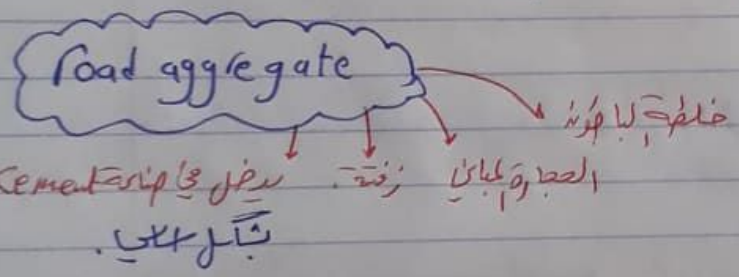 road aggregate
خلطة الباطون
الحجارة المباني
زفتة.
يدخل في صناعة Cement
بشكل أساسي.